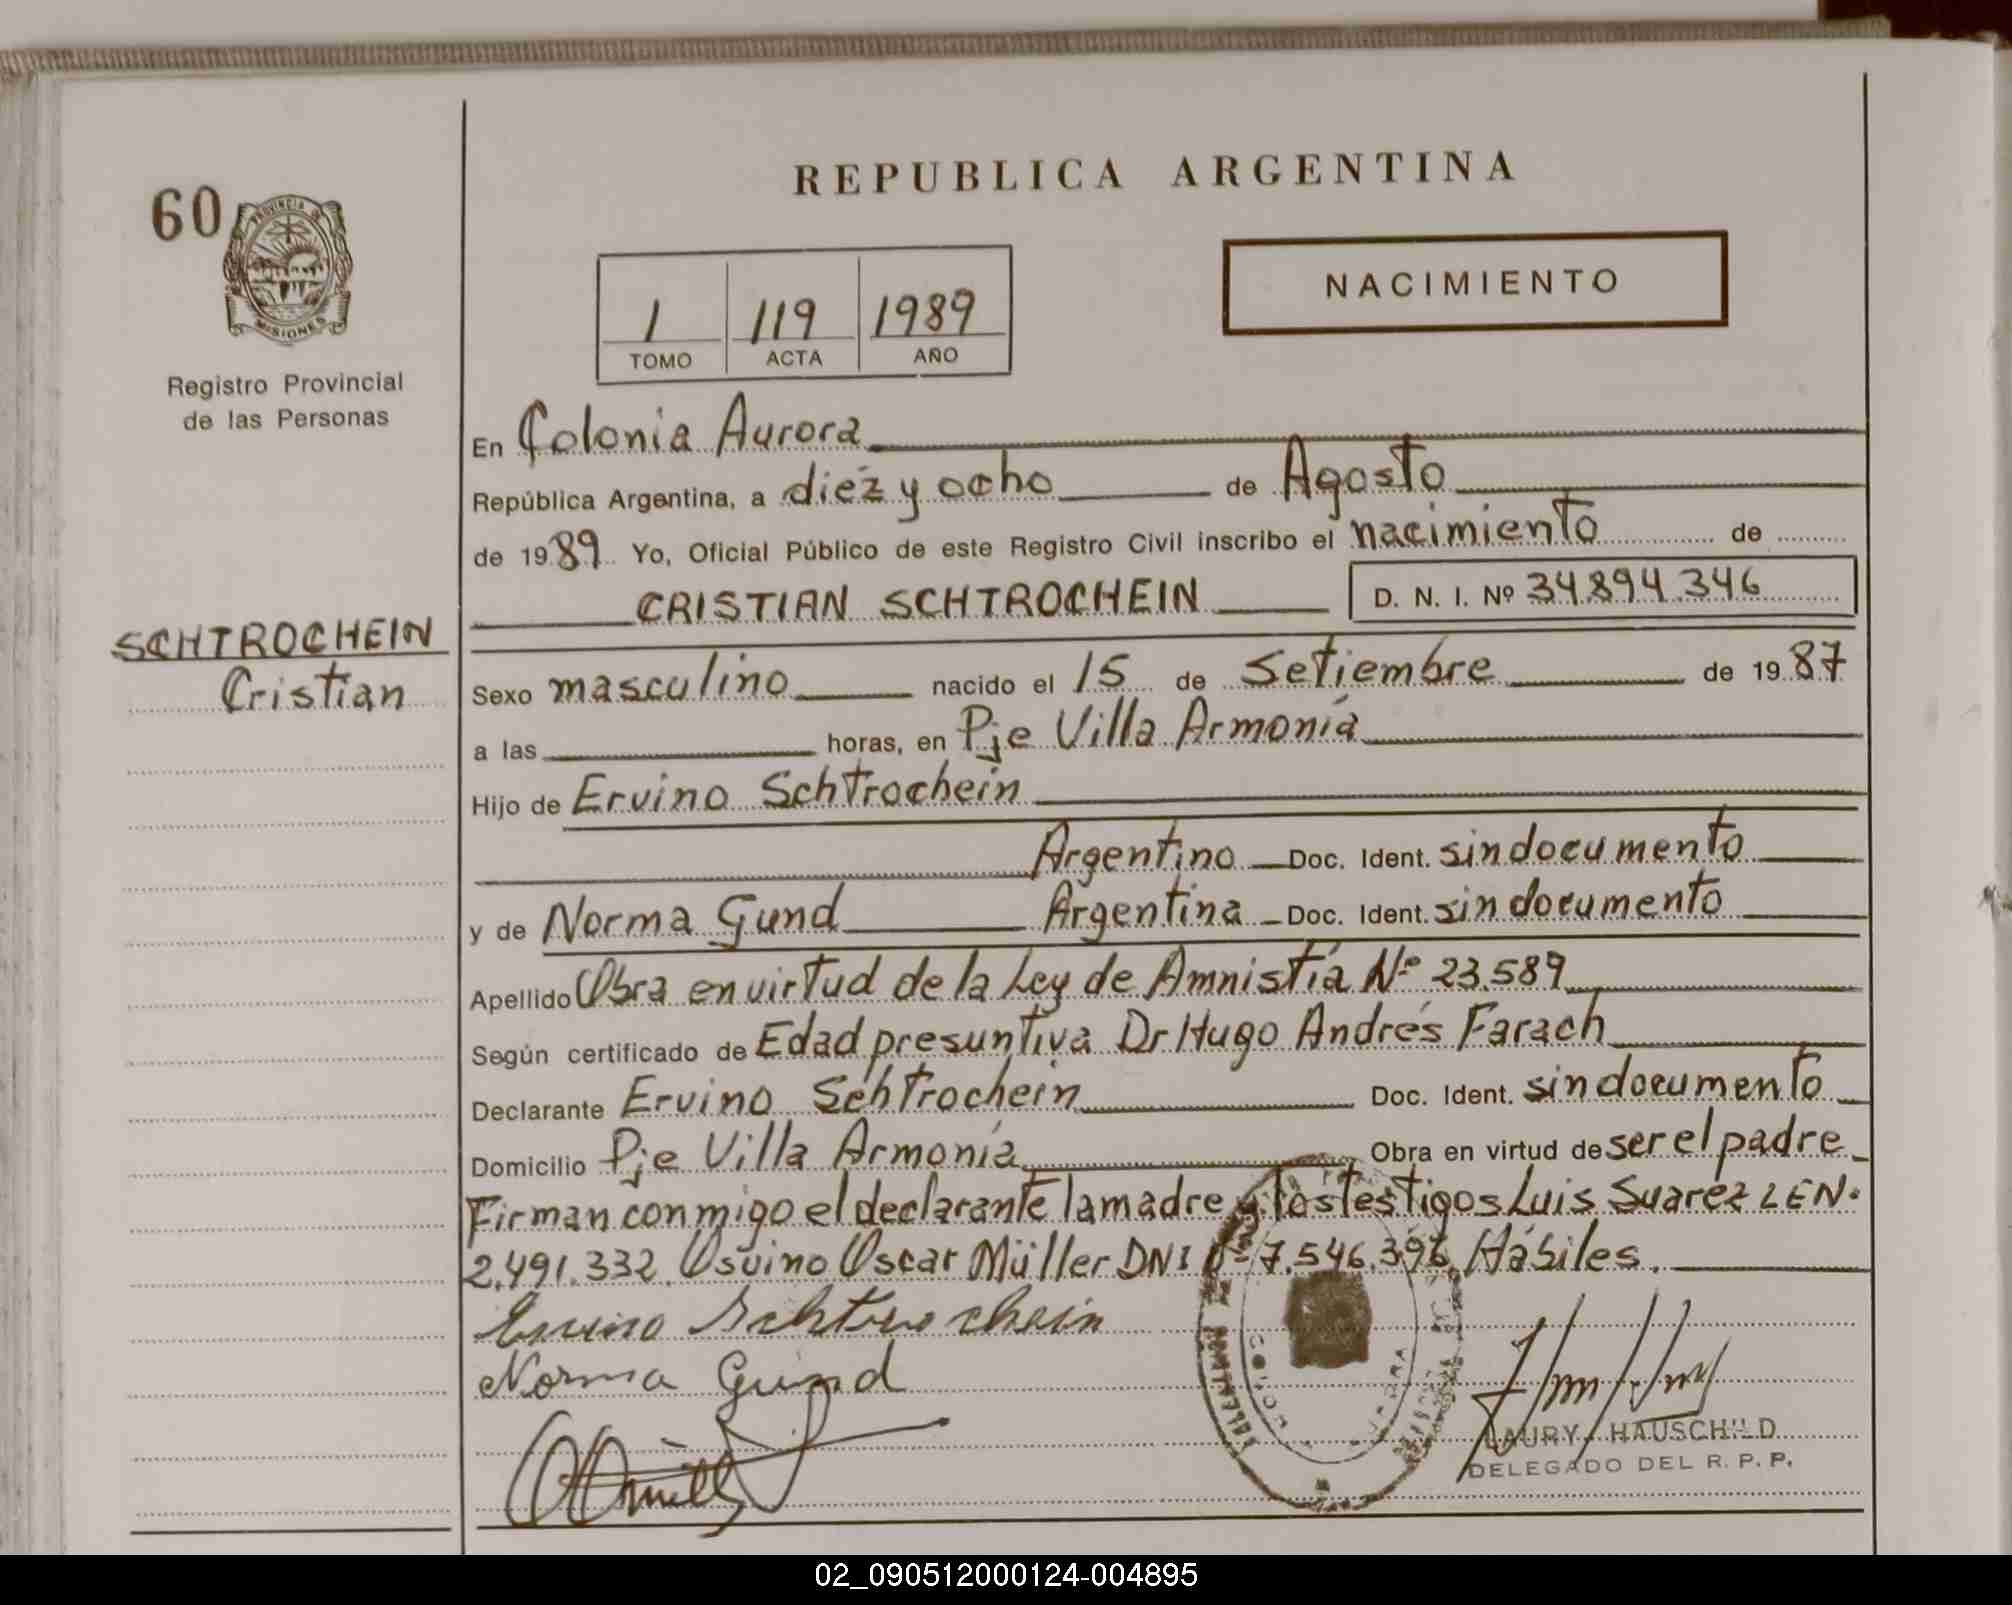 REPUBLICA ARGENTINA
60
PROVINCIA DE
MISIONES
NACIMIENTO
1 119 1989
TOMO ACTA AÑO
Registro Provincial
de las Personas
En Colonia Aurora
República Argentina, a diez y ocho de Agosto
de 1989 Yo, Oficial Público de este Registro Civil inscribo el nacimiento de
CRISTIAN SCHTROCHEIN D. N. I. Nº 34.894.346
SCHTROCHEIN
Cristian
Sexo masculino nacido el 15 de Setiembre de 1987
a las horas, en Pje Villa Armonía
Hijo de Ervino Schtrochein
Argentino Doc. Ident. sin documento
y de Norma Gund Argentina Doc. Ident. sin documento
Apellido Obra en virtud de la Ley de Amnistía Nº 23.589
Según certificado de Edad presuntiva Dr Hugo Andrés Farach
Declarante Ervino Schtrochein Doc. Ident. sin documento
Domicilio Pje Villa Armonía Obra en virtud de ser el padre
Firman conmigo el declarante la madre y los testigos Luis Suarez LEN.
2.491.332 Osvino Oscar Müller DNI 7.546.396 Hábiles.
Ervino Schtrochein
Norma Gund
LAURY HAUSCHILD
DELEGADO DEL R. P. P.
02_090512000124-004895